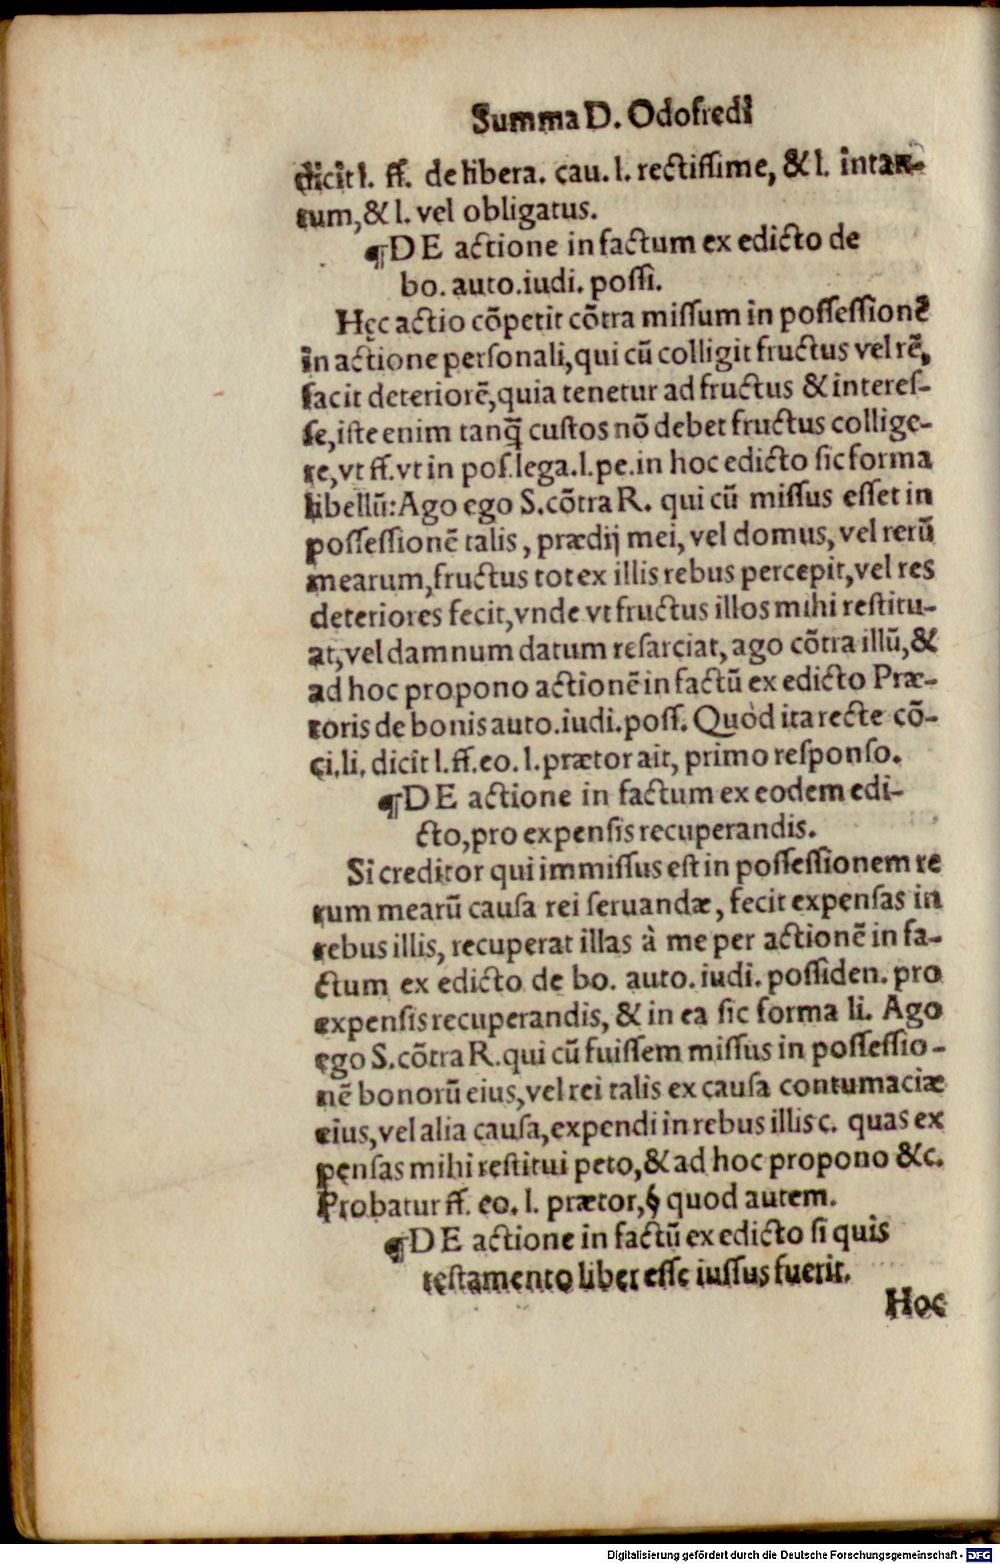 Summa D. Odofredi
dicit l. ff. de libera. cau. l. rectissime, & l. intan-
tum, & l. vel obligatus.
¶DE actione in factum ex edicto de
bo. auto. iudi. possi.
Hęc actio cõpetit cõtra missum in possessionẽ
in actione personali, qui cũ colligit fructus vel rẽ,
facit deteriorẽ, quia tenetur ad fructus & interes-
se, iste enim tanq̃ custos nõ debet fructus collige-
re, vt ff. vt in pos. lega. l. pe. in hoc edicto sic forma
libellũ: Ago ego S. cõtra R. qui cũ missus esset in
possessionẽ talis, prædij mei, vel domus, vel rerũ
mearum, fructus tot ex illis rebus percepit, vel res
deteriores fecit, vnde vt fructus illos mihi restitu-
at, vel damnum datum resarciat, ago cõtra illũ, &
ad hoc propono actionẽ in factũ ex edicto Præ-
toris de bonis auto. iudi. poss. Quòd ita recte cõ-
ci. li. dicit l. ff. eo. l. prætor ait, primo responso.
¶DE actione in factum ex eodem edi-
cto, pro expensis recuperandis.
Si creditor qui immissus est in possessionem re
rum mearũ causa rei seruandæ, fecit expensas in
rebus illis, recuperat illas à me per actionẽ in fa-
ctum ex edicto de bo. auto. iudi. possiden. pro
expensis recuperandis, & in ea sic forma li. Ago
ego S. cõtra R. qui cũ fuissem missus in possessio-
nẽ bonorũ eius, vel rei talis ex causa contumaciæ
eius, vel alia causa, expendi in rebus illis c. quas ex
pensas mihi restitui peto, & ad hoc propono &c.
Probatur ff. eo. l. prætor, § quod autem.
¶DE actione in factũ ex edicto si quis
testamento liber esse iussus fuerit.
Hoc
Digitalisierung gefördert durch die Deutsche Forschungsgemeinschaft - DFG